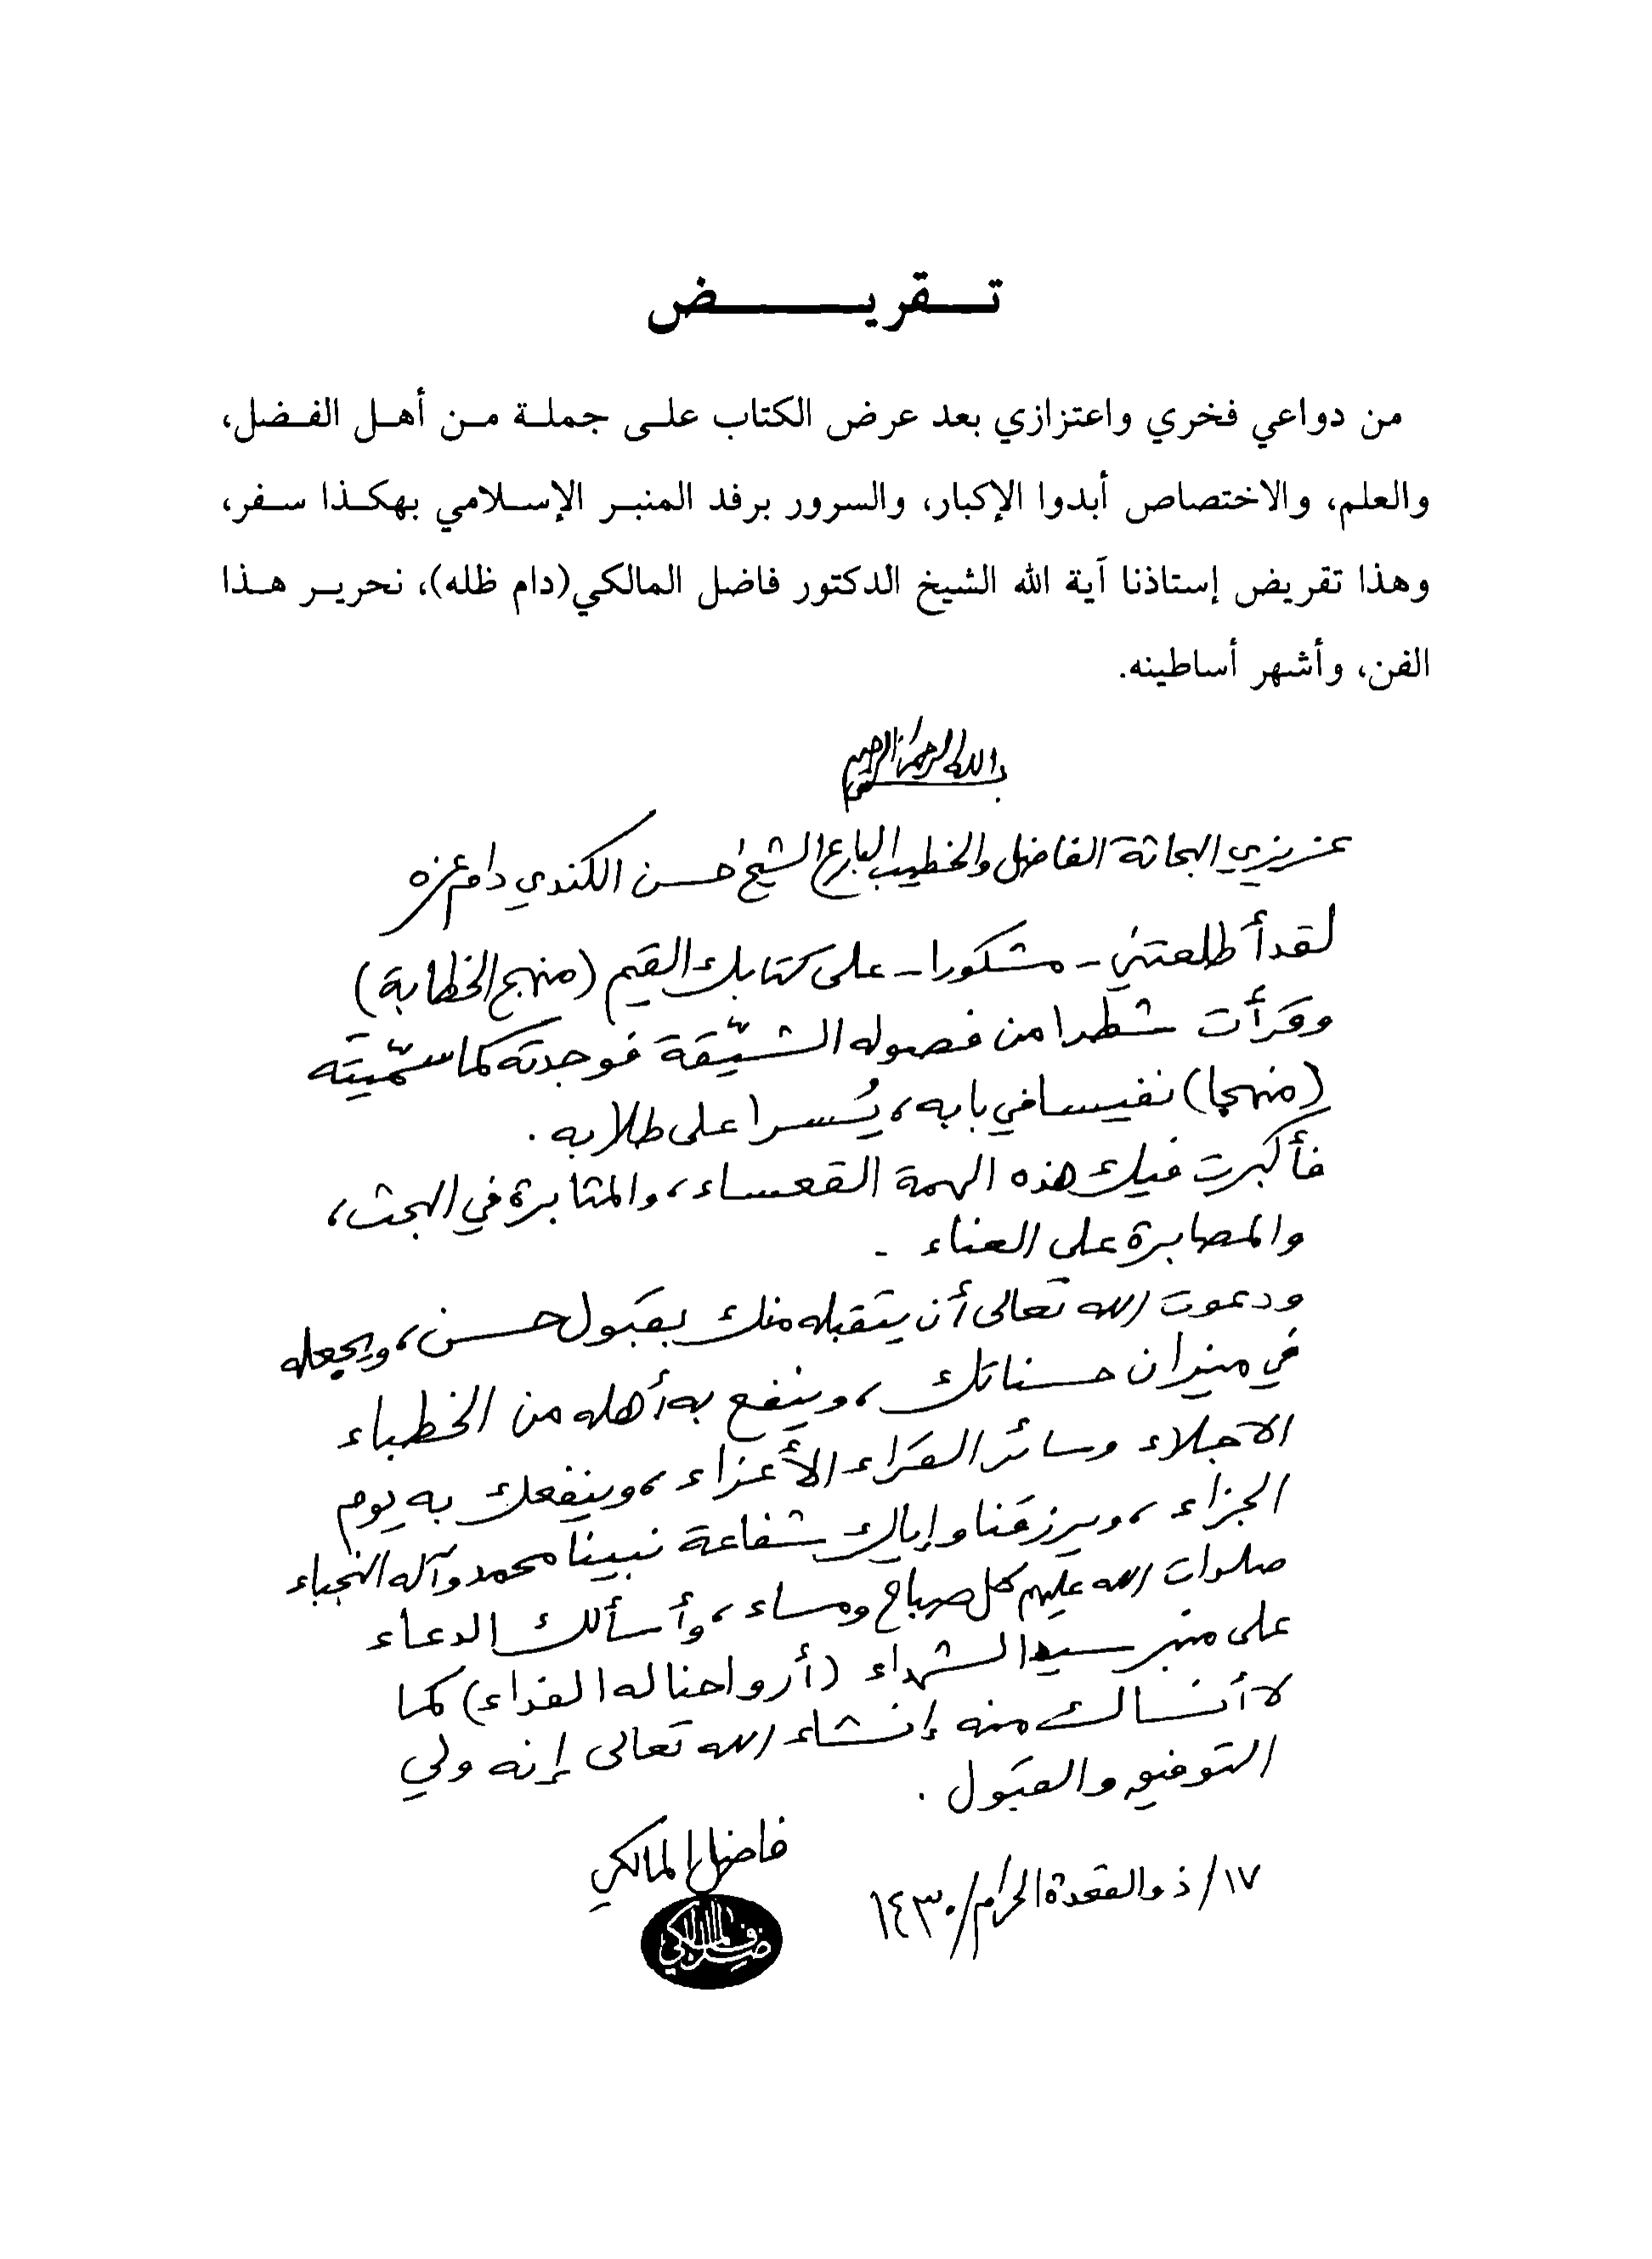 تقريض
من دواعي فخري واعتزازي بعد عرض الكتاب على جملة من أهل الفضل،
والعلم، والاختصاص أبدوا الإكبار، والسرور برفد المنبر الإسلامي بهكذا سفر،
وهذا تقريض إستاذنا آية الله الشيخ الدكتور فاضل المالكي(دام ظله)، نحرير هذا
الفن، وأشهر أساطينه.
بسم الله الرحمن الرحيم
عزيزي البحاثة الفاضل والخطيب البارع الشيخ حسن الكندي دام عزه
لقد أطلعتني - مشكورا - على كتابك القيم (منهج الخطابة)
وقرأت شطرا من فصوله الشيّقة فوجدته كما سمّيته
(منهجا) نفيسا في بابه، يُسرا على طلابه.
فأكبرت فيك هذه الهمة القعساء، والمثابرة في البحث،
والمصابرة على العناء -
ودعوت الله تعالى أن يتقبله منك بقبول حسن، ويجعله
في ميزان حسناتك، وينفع به أهله من الخطباء
الاجلاء وسائر القراء الأعزاء، وينفعك به يوم
الجزاء، ويرزقنا وإياك شفاعة نبينا محمد وآله النجباء
صلوات الله عليهم كل صباح ومساء، وأسألك الدعاء
على منبر سيد الشهداء (أرواحنا له الفداء) كما
لا أنساك منه إنشاء الله تعالى إنه ولي
التوفيق والقبول.
فاضل المالكي
١٧/ذو القعدة الحرام/١٤٣٠